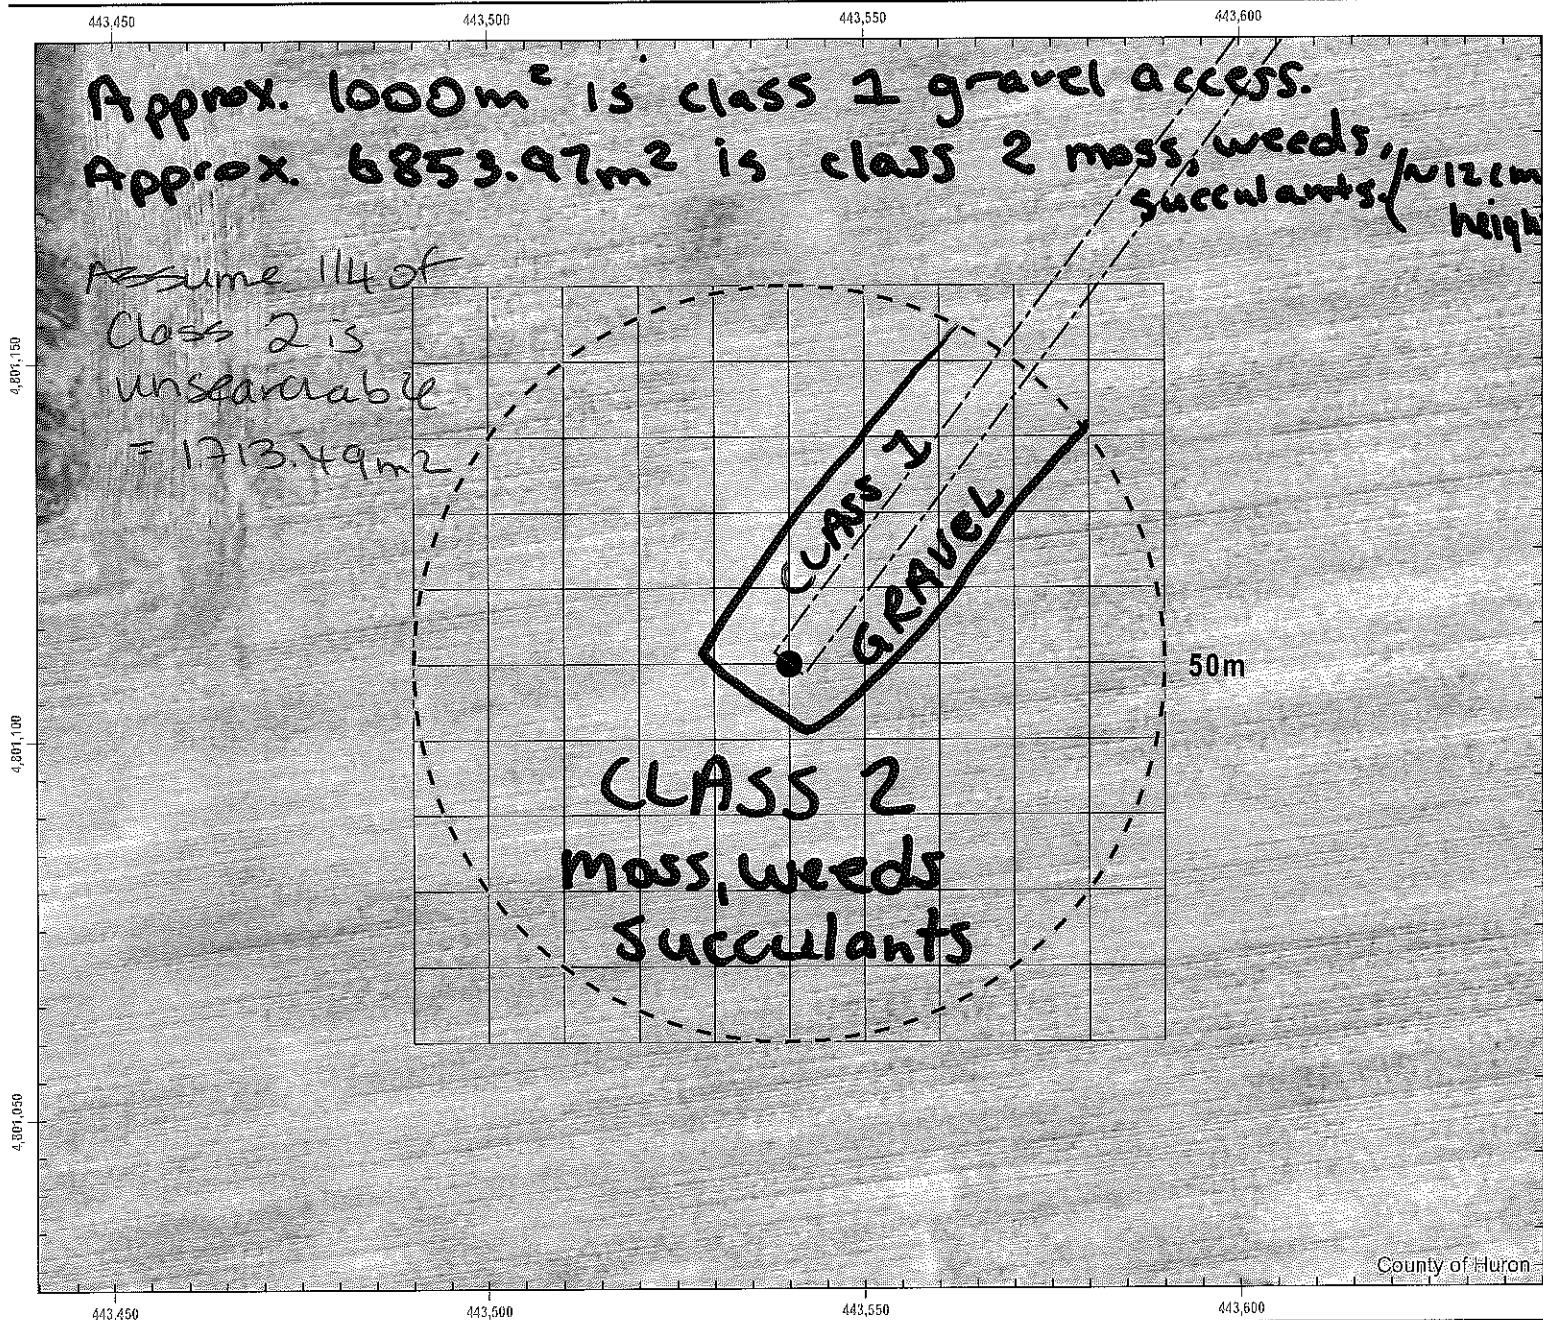 443,450 443,500 443,550 443,600
Approx. 1000m² is class 1 gravel access.
Approx. 6853.97m² is class 2 moss, weeds,
succulants. ~12cm
heigh
Assume 1/4 of
Class 2 is
unsearchable
= 1713.49m2
4,801,150
CLASS 1
GRAVEL
50m
4,801,100
CLASS 2
Moss, weeds
Succulants
4,801,050
County of Huron
443,450 443,500 443,550 443,600